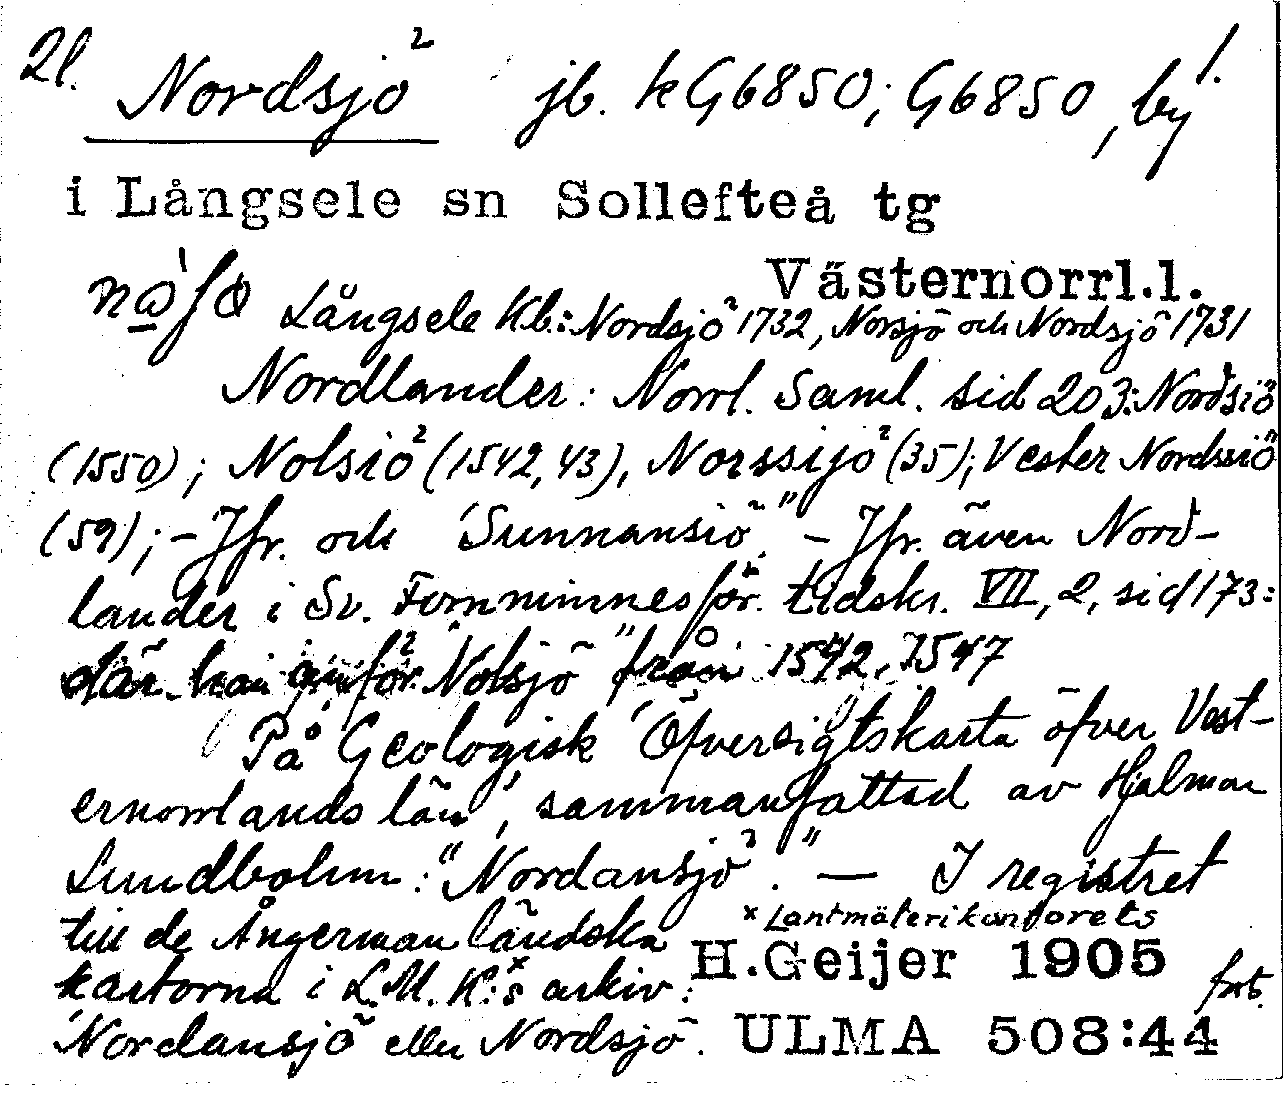 2l. Nordsjö jb. k G6850; G6850, by 1.
i Långsele sn Sollefteå tg
Västernorrl.l.
Långsele Kb.: Nordsjö 1732, Norsjö och Nordsjö 1731
Nordlander: Norrl. Saml. sid 203: Nordsiö
(1550); Nolsiö (1542, 43), Norssijö (35); Vester Nordssiö
(59); - Jfr. och "Sunnansiö". - Jfr. även Nord-
lander i Sv. Fornminnesför. tidskr. VII, 2, sid 173:
där han anför "Nolsjö" från 1542, 1547
På "Geologisk Öfversigtskarta öfver Vest-
ernorrlands län", sammanfattad av Hjalmar
Lundbohm: "Nordansjö". — I registret
till de Ångermanländska
x Lantmäterikontorets
kartorna i L.M.K:s x arkiv:
H.Geijer 1905
forts.
Nordansjö eller Nordsjö.
ULMA 508:44